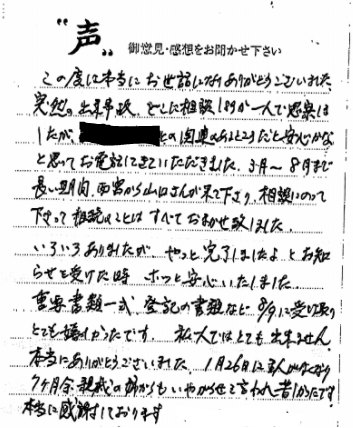 "声"
御意見・感想をお聞かせ下さい
この度は本当にお世話になりありがとうございました。
突然の出来事で、どこに相談 一人で
したが、 との関連のあるところだと安心かな
と思ってお電話させていただきました。3月～8月まで
長い期間、西宮から山口さんが来て下さり、相談にのって
下さって相続のことはすべておまかせ致しました。
いろいろありましたが、やっと完了しましたよとお知
らせを受けた時、ホッと安心いたしました。
重要書類一式、登記の書類など8/9に受け取り
とても嬉しかったです。私一人ではとても出来ません。
本当にありがとうございました。1月26日に主人が亡くなり
7ヶ月余 親戚の姉からもいやがらせを言われ苦しかったです。
本当に感謝しております